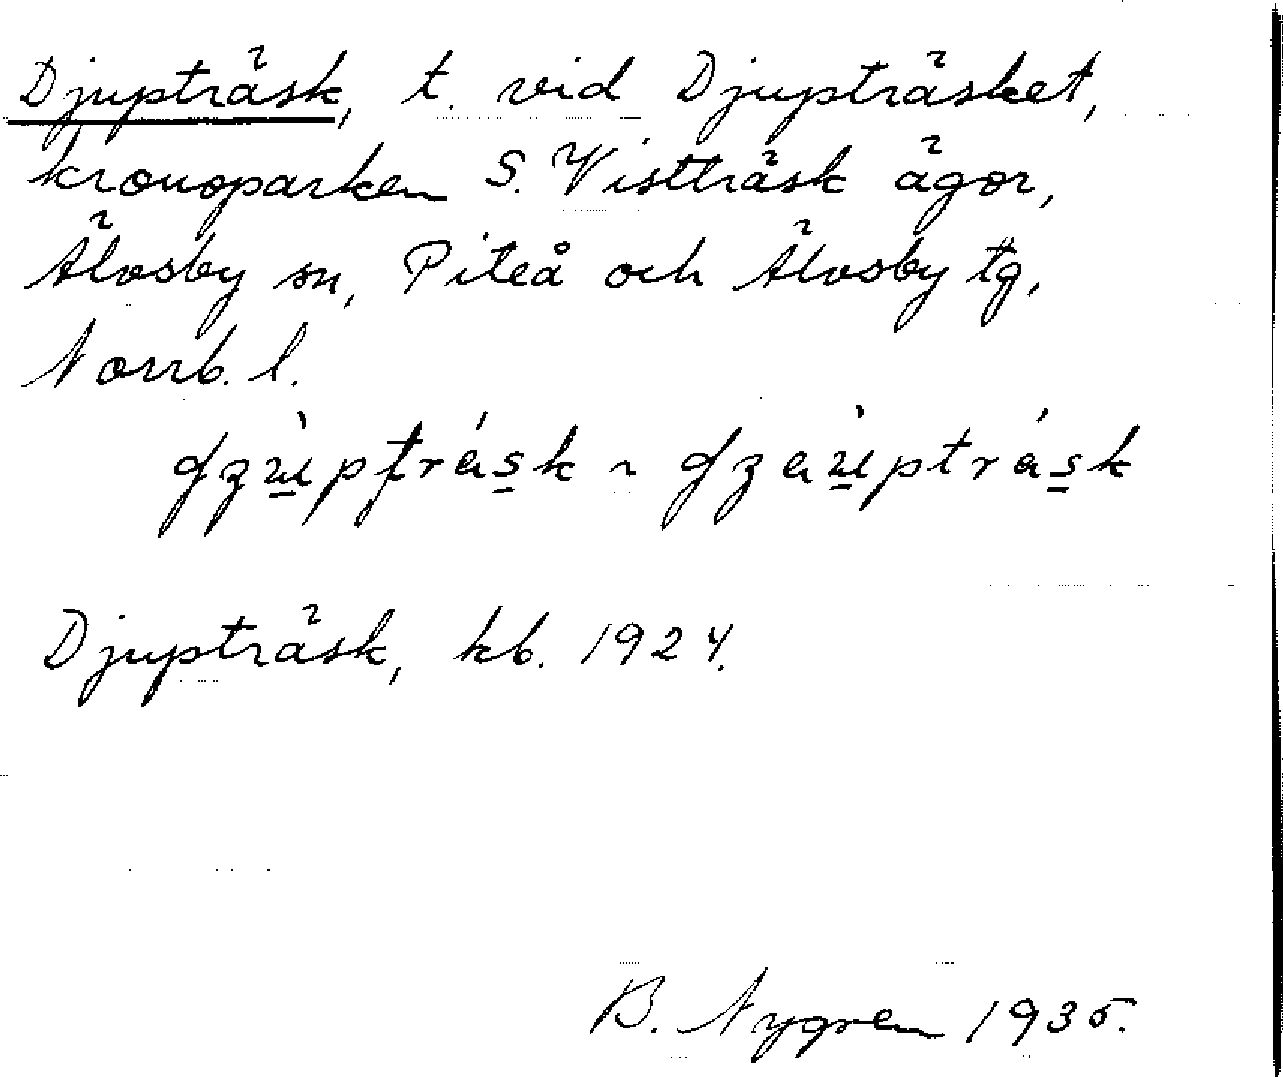 Djupträsk, t. vid Djupträsket,
kronoparken S. Vistträsk ägor,
Älvsby sn, Piteå och Älvsby tg,
Norrb. l.
Djupträsk, kb. 1924.
B. Nygren 1935.